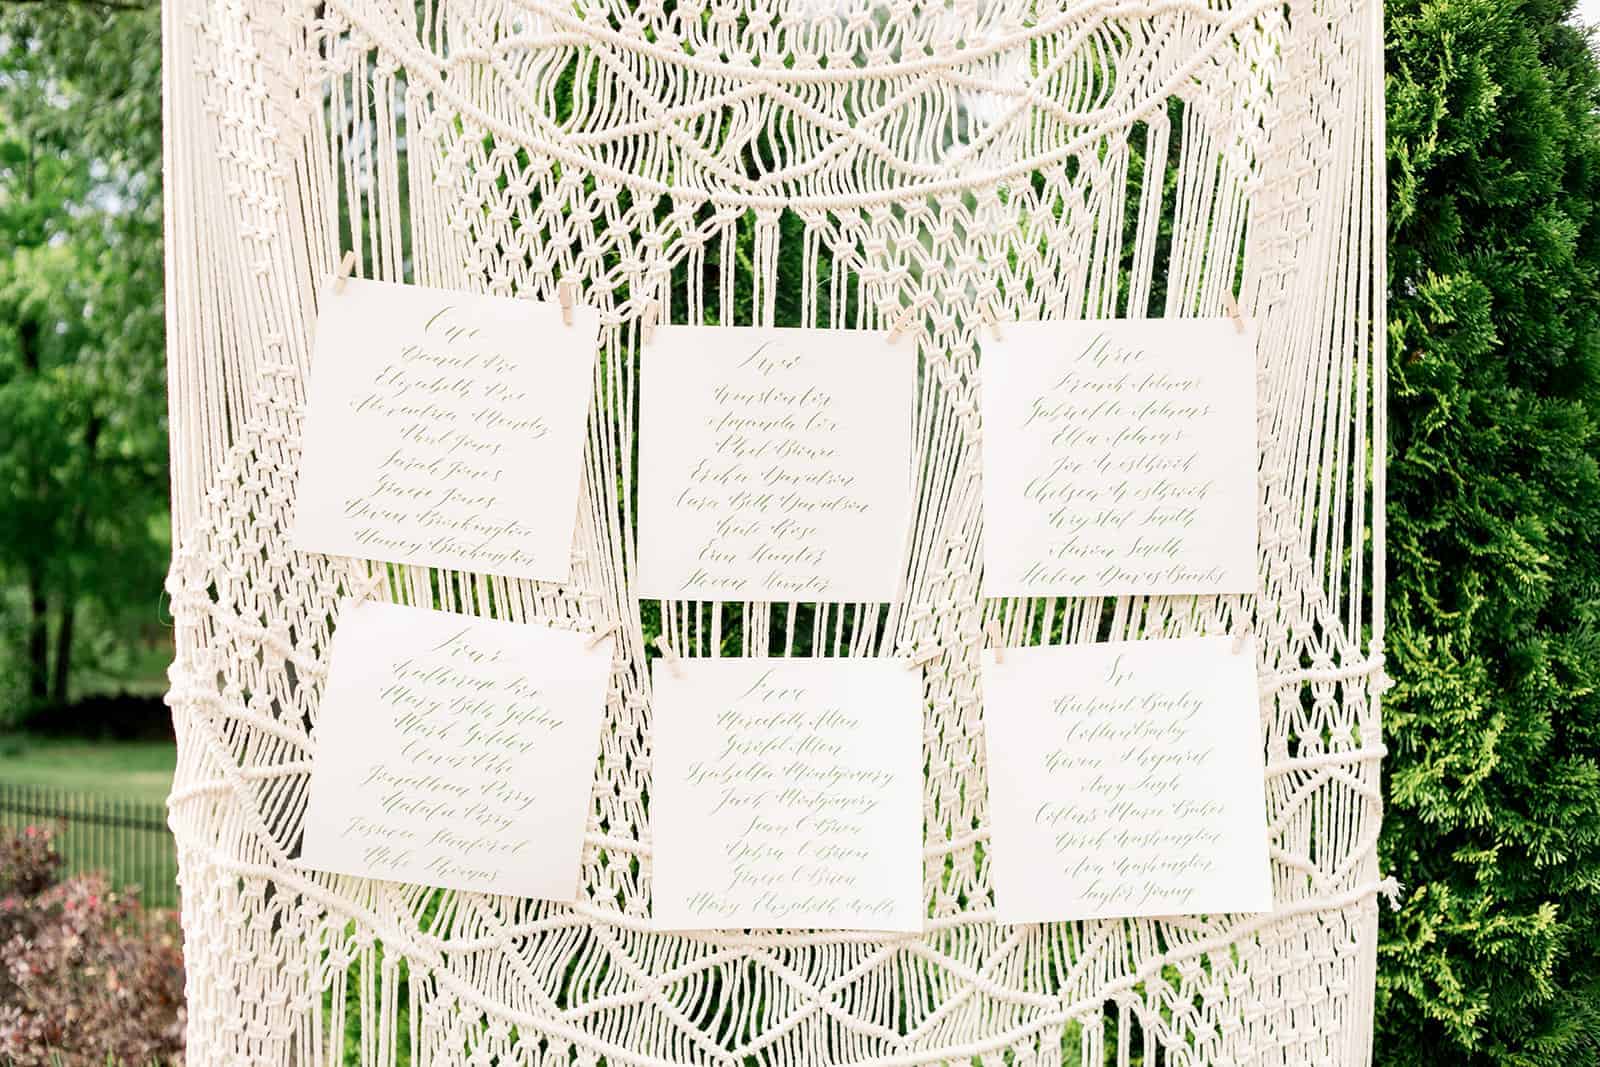 One
Daniel Poe
Elizabeth Poe
Alexandria Mendez
Paul Jones
Sarah Jones
Gracie Jones
Devan Brockington
Nancy Brockington
Two
Winston Cox
Amanda Cox
Phil
Ericka Davidson
Cara Beth Davidson
Kate Rose
Erin Hunter
Steven Hunter
Three
Frank Adams
Gabrielle Adams
Ella Adams
Joe Westbrook
Chelsea Westbrook
Krystal Smith
Aaron Smith
Helen Davis Banks
Four
Katherine
Mary Beth Golden
Mark Golden
Oliver
Jonathan Perry
Natalie Perry
Jessica Stanford
Mike Thomas
Five
Meredith Allen
Gerald Allen
Isabella Montgomery
Jack Montgomery
Sean O'Brien
Debra O'Brien
Ginere O'Brien
Mary Elizabeth Walls
Six
Richard Bailey
Colton Bailey
Kevin Shepard
Amy Leigh
Collins Marie Baker
Derek Washington
Ava Washington
Taylor Young